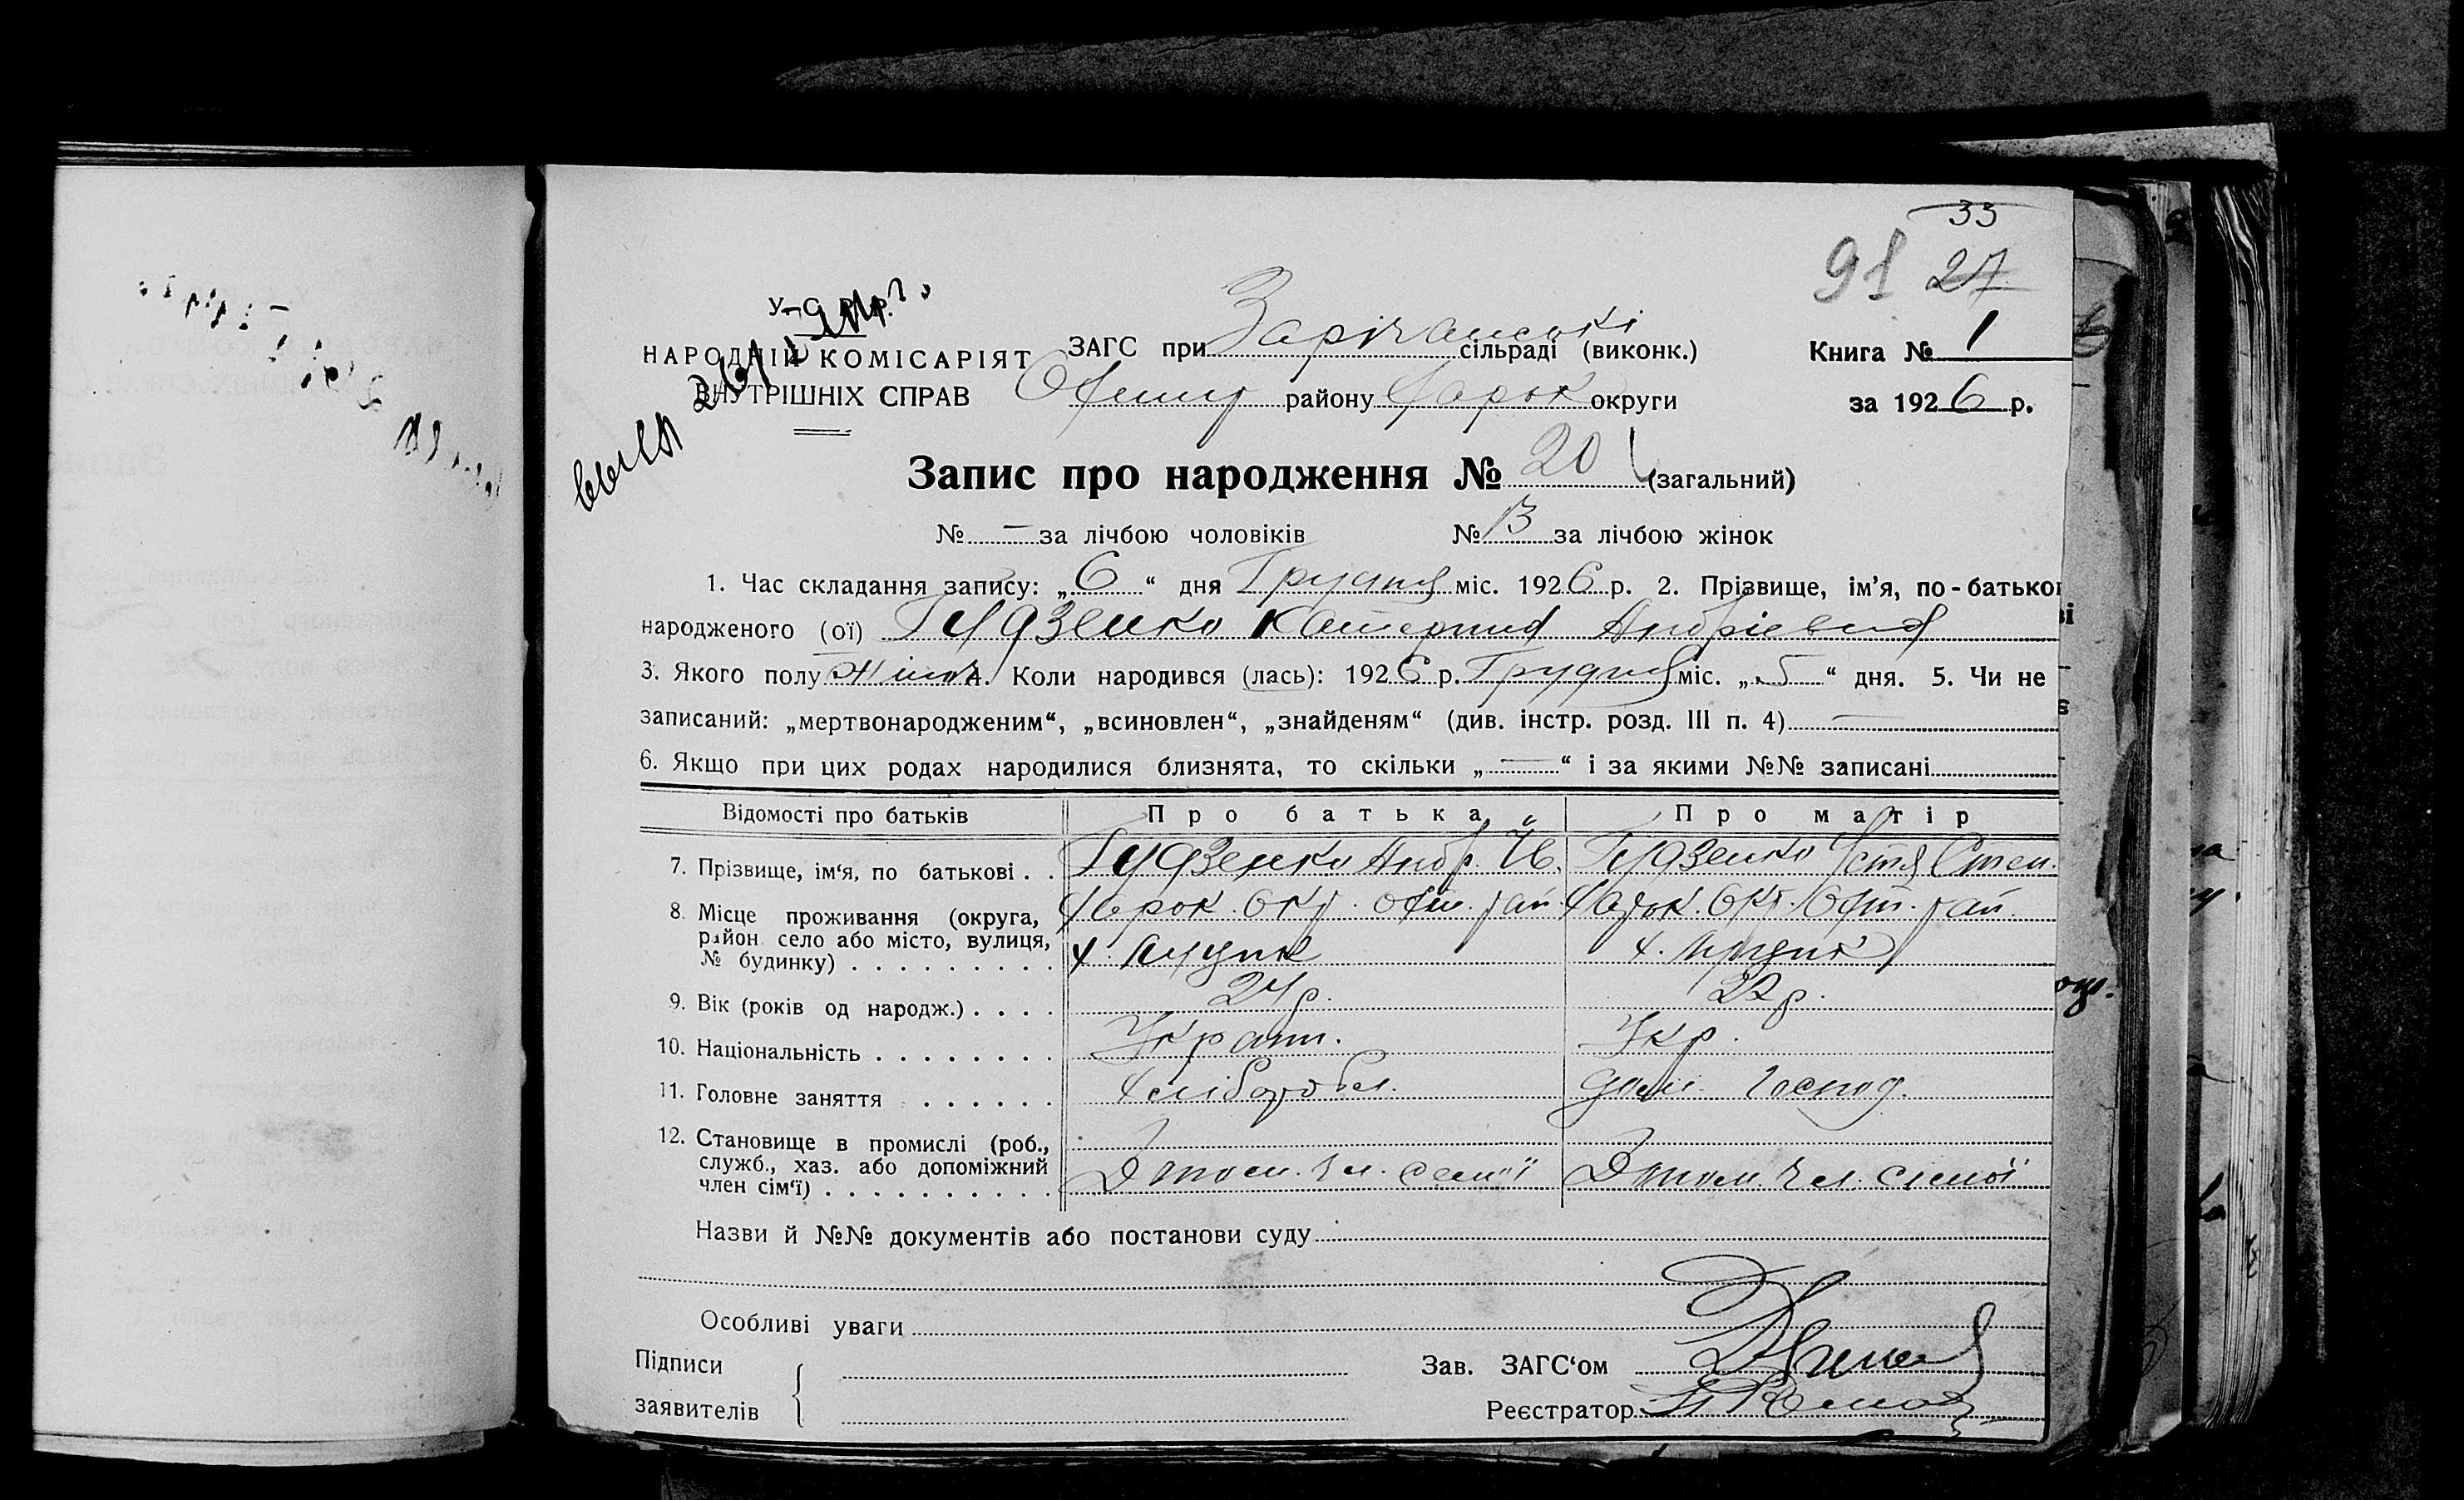 33
91 27
У. С. Р. Р.
НАРОДНІЙ КОМІСАРІЯТ
ВНУТРІШНІХ СПРАВ
ЗАГС при Зарічанські сільраді (виконк.)
району Харьк округи
Книга № 1
за 1926 р.
Запис про народження № 20 (загальний)
№ — за лічбою чоловіків № 13 за лічбою жінок
1. Час складання запису: „ 6 “ дня Грудня міс. 1926 р. 2. Прізвище, ім’я, по-батько
народженого (ої) Гудзенко Катерина Андріевна
3. Якого полу жіноч. Коли народився (лась): 1926 р. Грудня міс. „ 5 “ дня. 5. Чи не
записаний: „мертвонародженим“, „всиновлен“, „знайденям“ (див. інстр. розд. III п. 4) —
6. Якщо при цих родах народилися близнята, то скільки „ — “ і за якими №№ записані
Відомості про батьків Про батька Про матір
7. Прізвище, ім‘я, по батькові . . Гудзенко Андр. Ів. Гудзенко Устя Степ.
8. Місце проживання (округа, Харок. Окр. Охт. рай. Харок. Окр. Охт. рай.
район село або місто, вулиця,
№ будинку) . . . . . . . . . х. х.
9. Вік (років од народж.) . . . . 24 р. 22 р.
10. Національність . . . . . . . . Украін. Укр.
11. Головне заняття . . . . . . Хлібороб. дом. господ.
12. Становище в промислі (роб.,
служб., хаз. або допоміжний Допом. чл. семї Допом. чл. сімої
член сім‘ї) . . . . . . . . . .
Назви й №№ документів або постанови суду
Особливі уваги
Підписи
заявителів
Зав. ЗАГС‘ом
Реєстратор